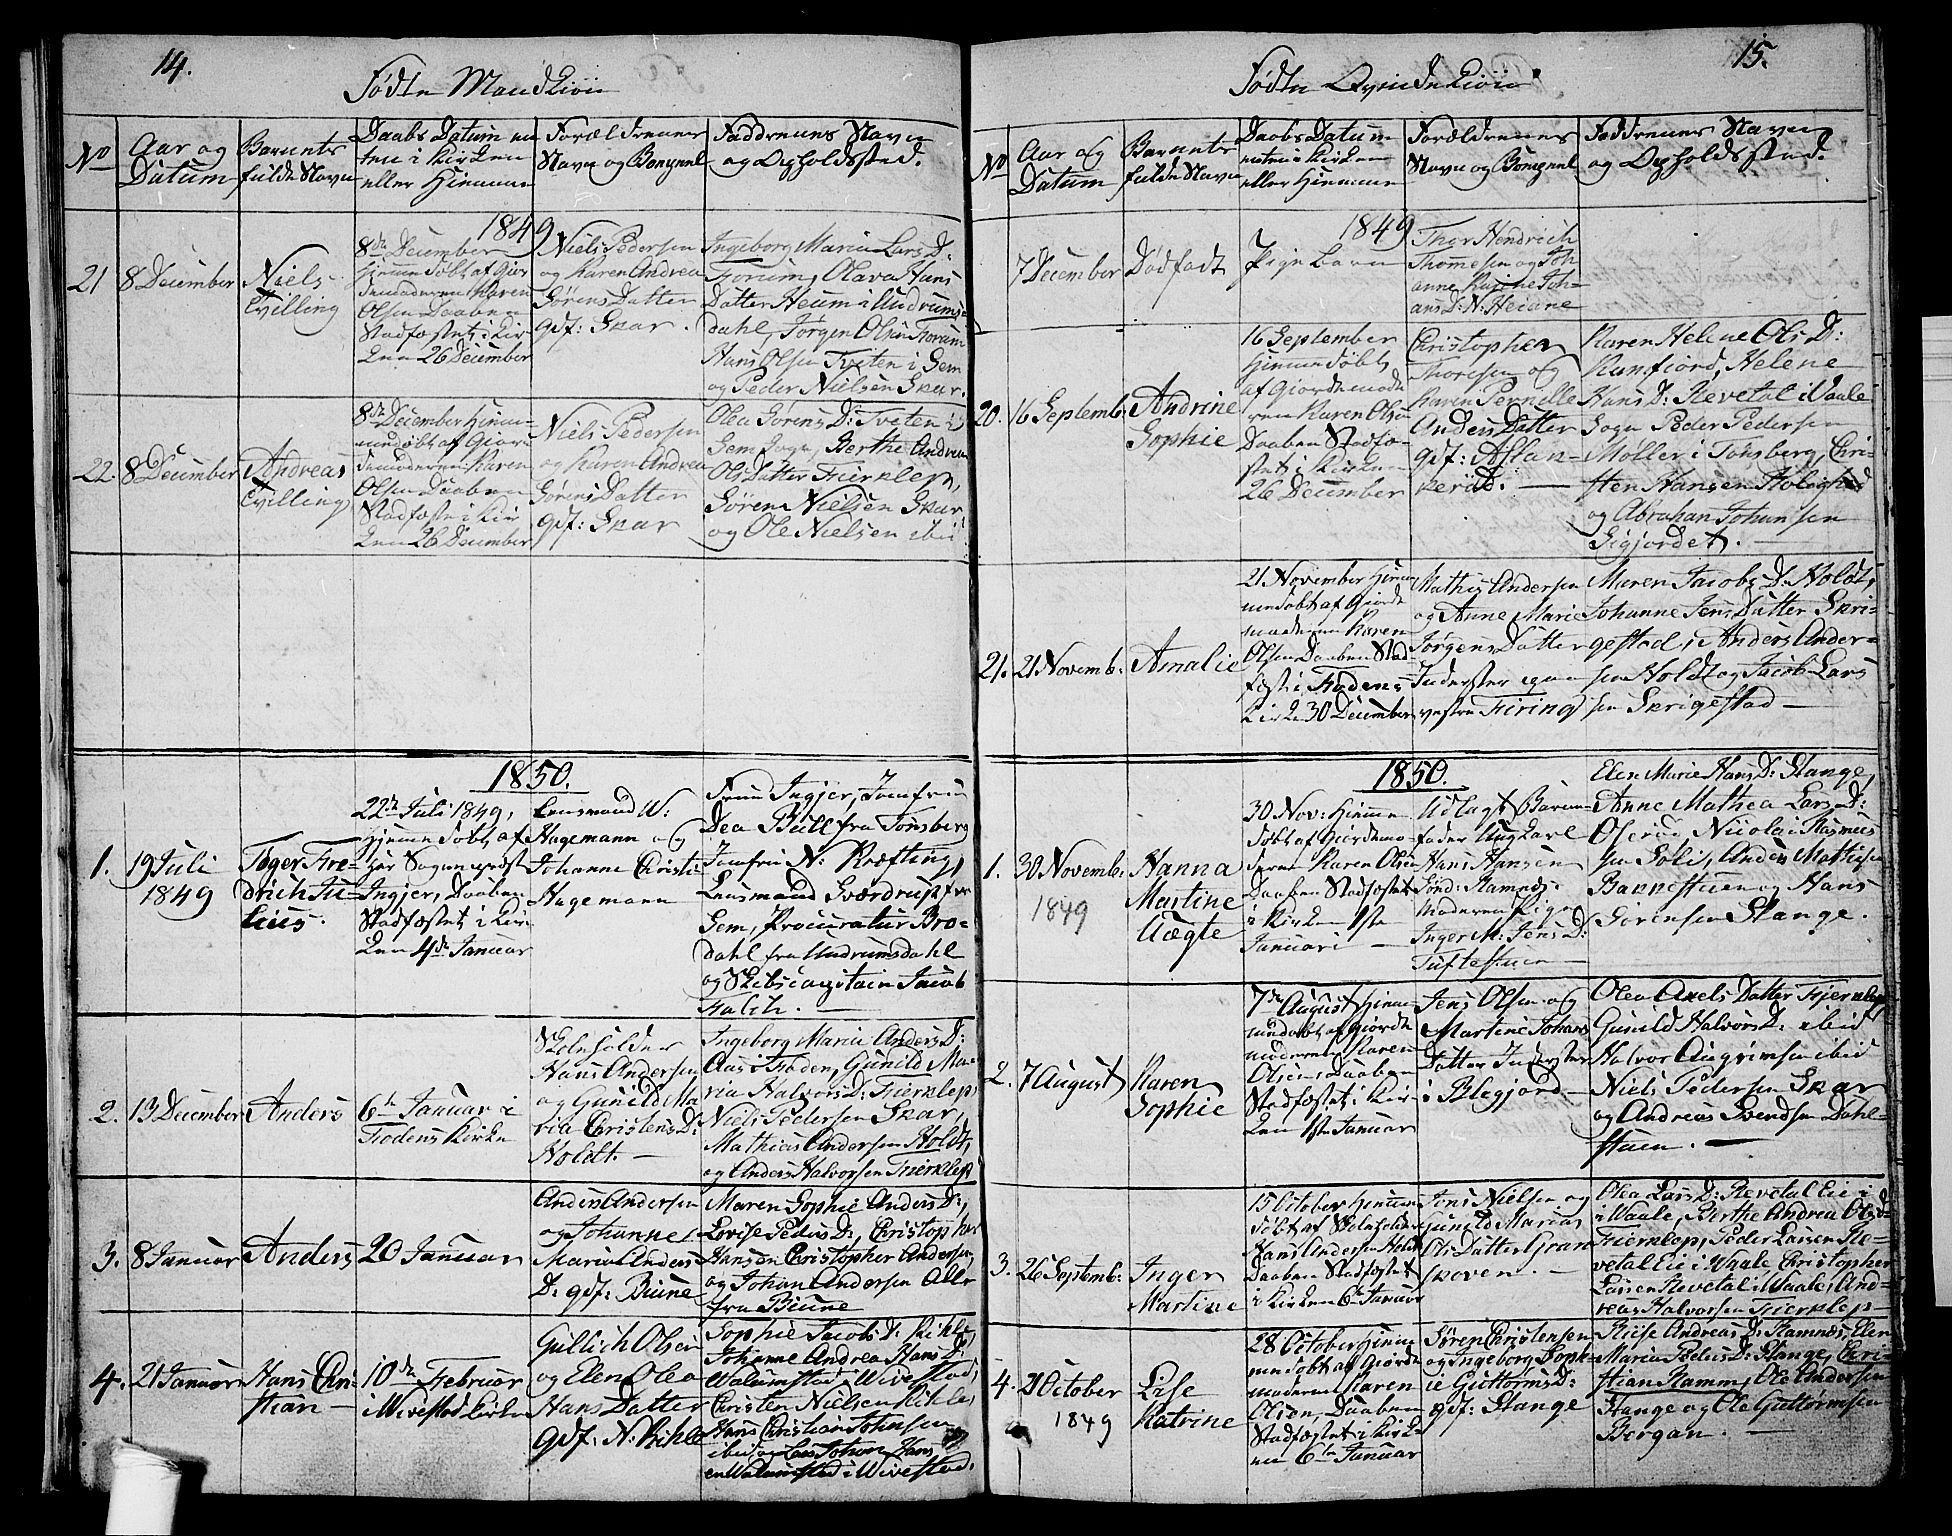 14.
Fødte Mandkiøn
No
Aar og
Datum
Barnets
fulde Navn
Daabs Datum en
ten i Kirken
eller Hiemme
Forældrenes
Navn og Bopæel
Faddrenes Navn
og Opholdssted.
1849
21
8 December
Niels
Tvilling
8de December
Hjemmedøbt af Gjor
demoderen Karen
Olsen Daaben
Stadfæstet i Kir
ken 26 December
Niels Pedersen
og Karen Andrea
Sørens Datter
gdf: Skar.
Ingeborg Maria Lars D:
Forum, Olava Hans
Datter Heum i Undrums
dahl, Jørgen Olsen Forum
Hans Olsen Tveten i Sem
og Peder Nielsen Skar.
22.
8 December
Andreas
Tvilling
8de December Hiem
mendøbt af Gior
demoderen Karen
Olsen Daaben
Stadfæste i Kir
ken 26 December
Niels Pedersen
og Karen Andrea
Sørens Datter
gdf: Skar
Olea Sørens D: Tveten i
Sem Sogn, Berthe Andrea
Ols Datter Fierklep,
Søren Nielsen Skar
og Ole Nielsen ibid
1850.
1.
19 Juli
1849
Fre-
drich Ju-
lius.
22de Juli 1849,
Hjemmedøbt af
her Sogneprest
Ingjer, Daaben
Stadfæstet i Kir
ken 4de Januar
Lensmand W:
Hagemann og
Johanne Christi
Hagemann
Frue Ingjer, Jomfru
Dea Bull fra Tønsberg
Jomfru N: Kræfting,
Lensmand Sværdrup fra
Sem, Procuratur Bro-
dahl fra Undrumsdahl
og Skibscapitain Jacob
Falch.
2.
13 December
Anders
6te Januar i
Fodens Kirke
Skoleholder
Hans Andersen
og Gunild Ma
ria Christens D:
Holdt.
Ingeborg Maria Anders D:
Aas i Foden, Gunild Ma-
ria Halvors D: Fierklep,
Niels Pedersen Skar,
Mathias Andersen Holdt,
og Anders Halvorsen Fierklep
3.
8 Januar
Anders
20 Januar
Anders Andersen
og Johanne
Maria Anders
D: gdf: Biune
Maren Sophie Anders D:,
Lovise Peders D:, Christopher
Hansen Christopher Andersen,
og Johan Andersen Alle
fra Biune
4.
21 Januar
Hans Chri-
stian
10de Februar
i Wivestad Kirke
Gullich Olsen
og Elen Olea
Hans Datter
gdf: N: Kihle
Sophie Jacobs D: Kihle,
Johanne Andrea Hans D:
Walumstad i Wivestad,
Christen Nielsen Kihle,
Hans Christian Johnsen
ibid og Johan Hans
en Walumstad i Wivestad.
15.
Fødte Qvindekiøn
No
Aar og
Datum
Barnets
fulde Navn
Daabs Datum
enten i Kirken
eller Hiemme
Forældrenes
Navn og Bopæel
Faddrenes Navn
og Opholdssted.
1849
7 December
Dødfødt
Pige Barn
Thor Hendrich
Thomesen og Joh
anne Kirstine Joh-
ans D: N: Heiane
20.
16 Septemb:
Andrine
Sophie
16 September
Hjemmedøbt
af Giordemode
ren Karen Olsen
Daaben Stadfæ-
stet i Kirken
26 December
Christopher
Thoresen og
Karen Pernille
Anders Datter
gdf: Aslan-
Karen Helene Ols D:
Ramfiord, Helene
Hans D: Revetal i Vaale
Sogn Peder Pedersen
Møller i Tønsberg, Chri-
sten Hansen
og Abrahan Johansen
Gigjordet.
21.
21 Novemb:
Amalie
21 November Hiem
mendøbt af Giorde
moderen Karen
Olsen Daaben Stad
fæste i Fodens
Kirke 30 December
Mathis Andersen
og Anne Marie
Jørgens Datter
Inderster paa
vestre Firing
Maren Jacobs D: Holdt,
Johanne Jens Datter Skri-
gestad, Anders Ander-
sen Holdt og Jacob Lars
sen Skrigestad
1850.
1.
30 Novemb:
1849
Hanna
Martine
Aagte
30 Nov: Hjemme
døbt af Gjordemo
deren Karen Olsen
Daaben Stadfæstet
i Kirken 1ste
Januari
Udlagt Barne
fader Ungkarl
Hans Hansen
Sønd: Ramnes:
Moderen Pige
Inger M: Jens D:
Tuftestuen
Elen Marie Hans D: Stange,
Anne Mathea Lars D:
Olsrød, Nicolai Rasmus
sen Soli, Anders Mathisen
Bannestuen og Hans
Sørensen Stange.
2.
7 August
Karen
Sophie
7de August Hiem
mendøbt af Giorde
moderen Karen
Olsen Daaben
Stadfæstet i Kir-
ken 1ste Januar
Jens Olsen og
Martine Johans
Datter Inderster
i Blegjord
Olea Axels Datter Fjerklep
Gunild Halvors D: ibid
Halvor Angrimsen ibid
Niels Pedersen Skar
og Andreas Svendsen Dahl-
stuen.
3.
26 Septemb:
Inger
Martine
15 October Hiemme
døbt af Skoleholder
Hans Andersen Holdt
Daaben Stadfæstet
i Kirken 6te Januar
Jens Nielsen og
Gunild Marias
Ols Datter Gran
skoven.
Olea Lars D: Revetal Eie i
i Waale, Berthe Andrea Ols D:
Fierklep, Peder Larsen Re-
vetal Eie i Waale, Christopher
Larsen Revetal i Waale, And-
reas Halvorsen Fierklep
4.
2 October
1849
Lise
Katrine
28 October Hiem
mendøbt af Giorde
moderen Karen
Olsen, Daaben
Stadfæstet i Kirk-
en 6te Januar
Søren Christensen
og Ingeborg Soph-
ie Guttorms D:
gdf: Stange
Andreas D: Ramnes, Elen
Maria Peders D: Stange, Chri-
stian Ramm, Ole Andersen
Stange og Ole Guttormsen
Bergan.